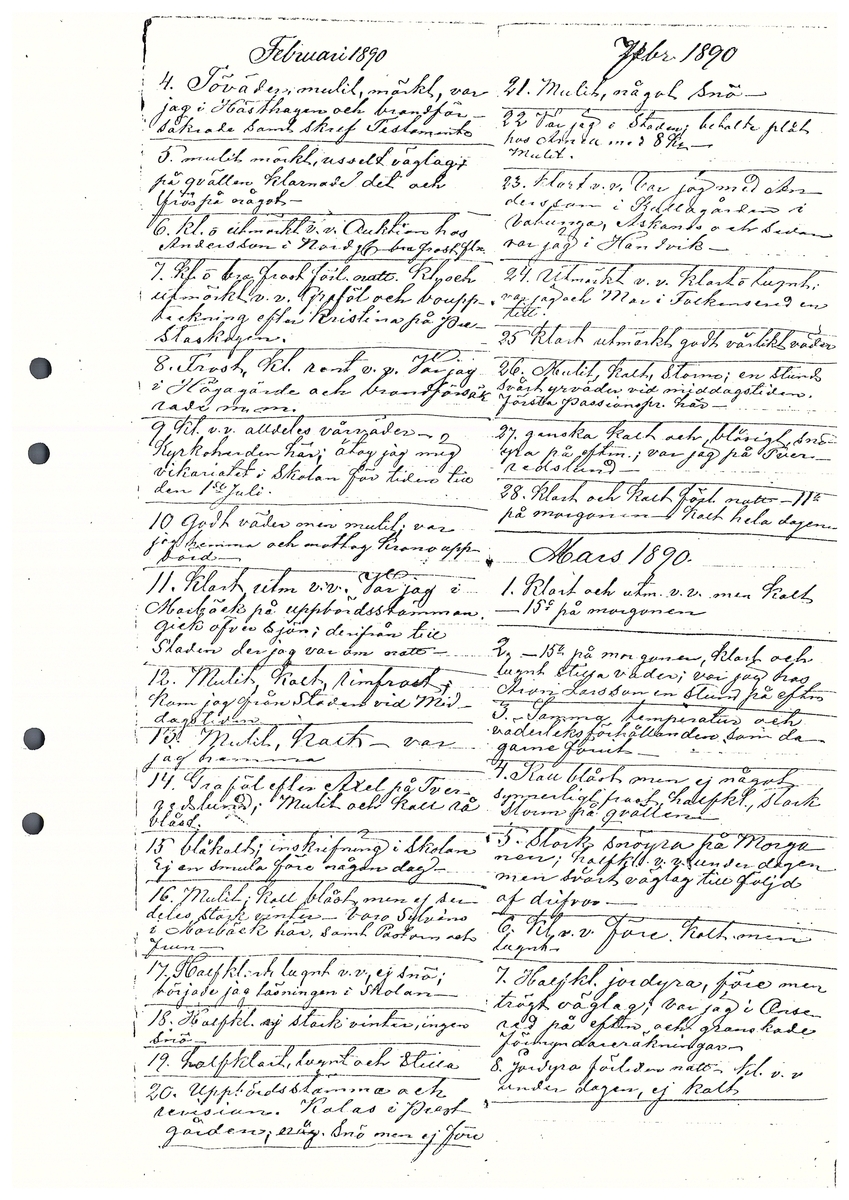 Februari 1890
4. Töväder, mulit, mörkt, var
jag i Hästhagen och brandför-
säkrade samt skref Testamente
5. mulit mörkt, usselt väglag;
på qvällen klarnade det och
frös på något-
6. kl. o utmärkt v.v. Auktion hos
Andersson i bra frost
7. Kl. o bra frost förl. natt. Kl. och
utmärkt v.v. Graföl och boupp-
teckning efter Kristina på
8. Frost, kl. rent v.v. Var jag
i Högagärde och brandförsäk
rade m.m.
9 Kl. v.v. alldeles vårväder-
Kyrkoherden här; åtog jag mig
vikariatet i Skolan för tiden till
den 1sta Juli.
10 Godt väder men mulit; var
jag hemma och mottog Kronoupp-
börd
11. Klart utm v.v. Var jag i
Marbäck på uppbördsstämman.
gick öfver Sjön; derifrån till
Staden der jag var om natt-
12. Mulit, kalt, rimfrost;
kom jag från Staden vid Mid-
dagstiden
13. Mulit, kalt- var
jag hemma
14. Graföl efter Axel på Tver-
redslund; Mulit och kall rå
blåst.
15 blåkalt; inskrifning i Skolan
Ej en smula före någon dag-
16. Mulit, kall blåst men ej sär-
deles stark vinter- Voro Sylvéns
i Marbäck här, samt Pastorn och
Frun-
17. Halfkl. lugnt v.v., ej snö;
började jag läsningen i Skolan-
18. Halfkl. ej stark vinter, ingen
snö-
19. halfklart, lugnt och stilla
20. Uppbördsstämma och
revision. Kalas i Prest
gården; snö men ej före
Febr 1890
21. Mulit, något snö-
22 Var jag i Staden; betalte plåt
hos med 8 Kr
Mulit.
23. Klart v.v. Var jag med An-
dersson i i
och sedan
var jag i Håndvik-
24. Utmärkt v.v. klart o lugnt;
var jag och Mor i Folkensered en
titt.
25 Klart utmärkt godt vårlikt väder
26. Mulit, kalt, Storm; en stund
svårt yrväder vid middagstiden.
Första Passionspr. här-
27. ganska kalt och blåsigt, snö
yra på eftm.; var jag på Tver-
redslund-
28. Klart och kalt förl. natt -11°
på morgonen- kalt hela dagen
Mars 1890.
1. Klart och utm. v.v. men kalt
-15° på morgonen
2. -15° på morgonen, klart och
lugnt stilla väder; var jag hos
Aron Larsson en stund på eftm
3. Samma temperatur och
väderleksförhållanden som da-
garne förut
4. Kall blåst men ej något
synnerligt frost, halfkl., stark
storm på qvällen
5. Stark snöyra på Morgo
nen; halfkl. v.v. under dagen
men svårt väglag till följd
af drifvor-
6. Kl. v.v. Före. kalt men
lugnt-
7. Halfkl. jordyra, före men
trögt väglag; var jag i Onse-
red på eftm. och granskade
Förmyndareräkningar
8. Jordyra förliden natt- kl. v.v
under dagen, ej kalt